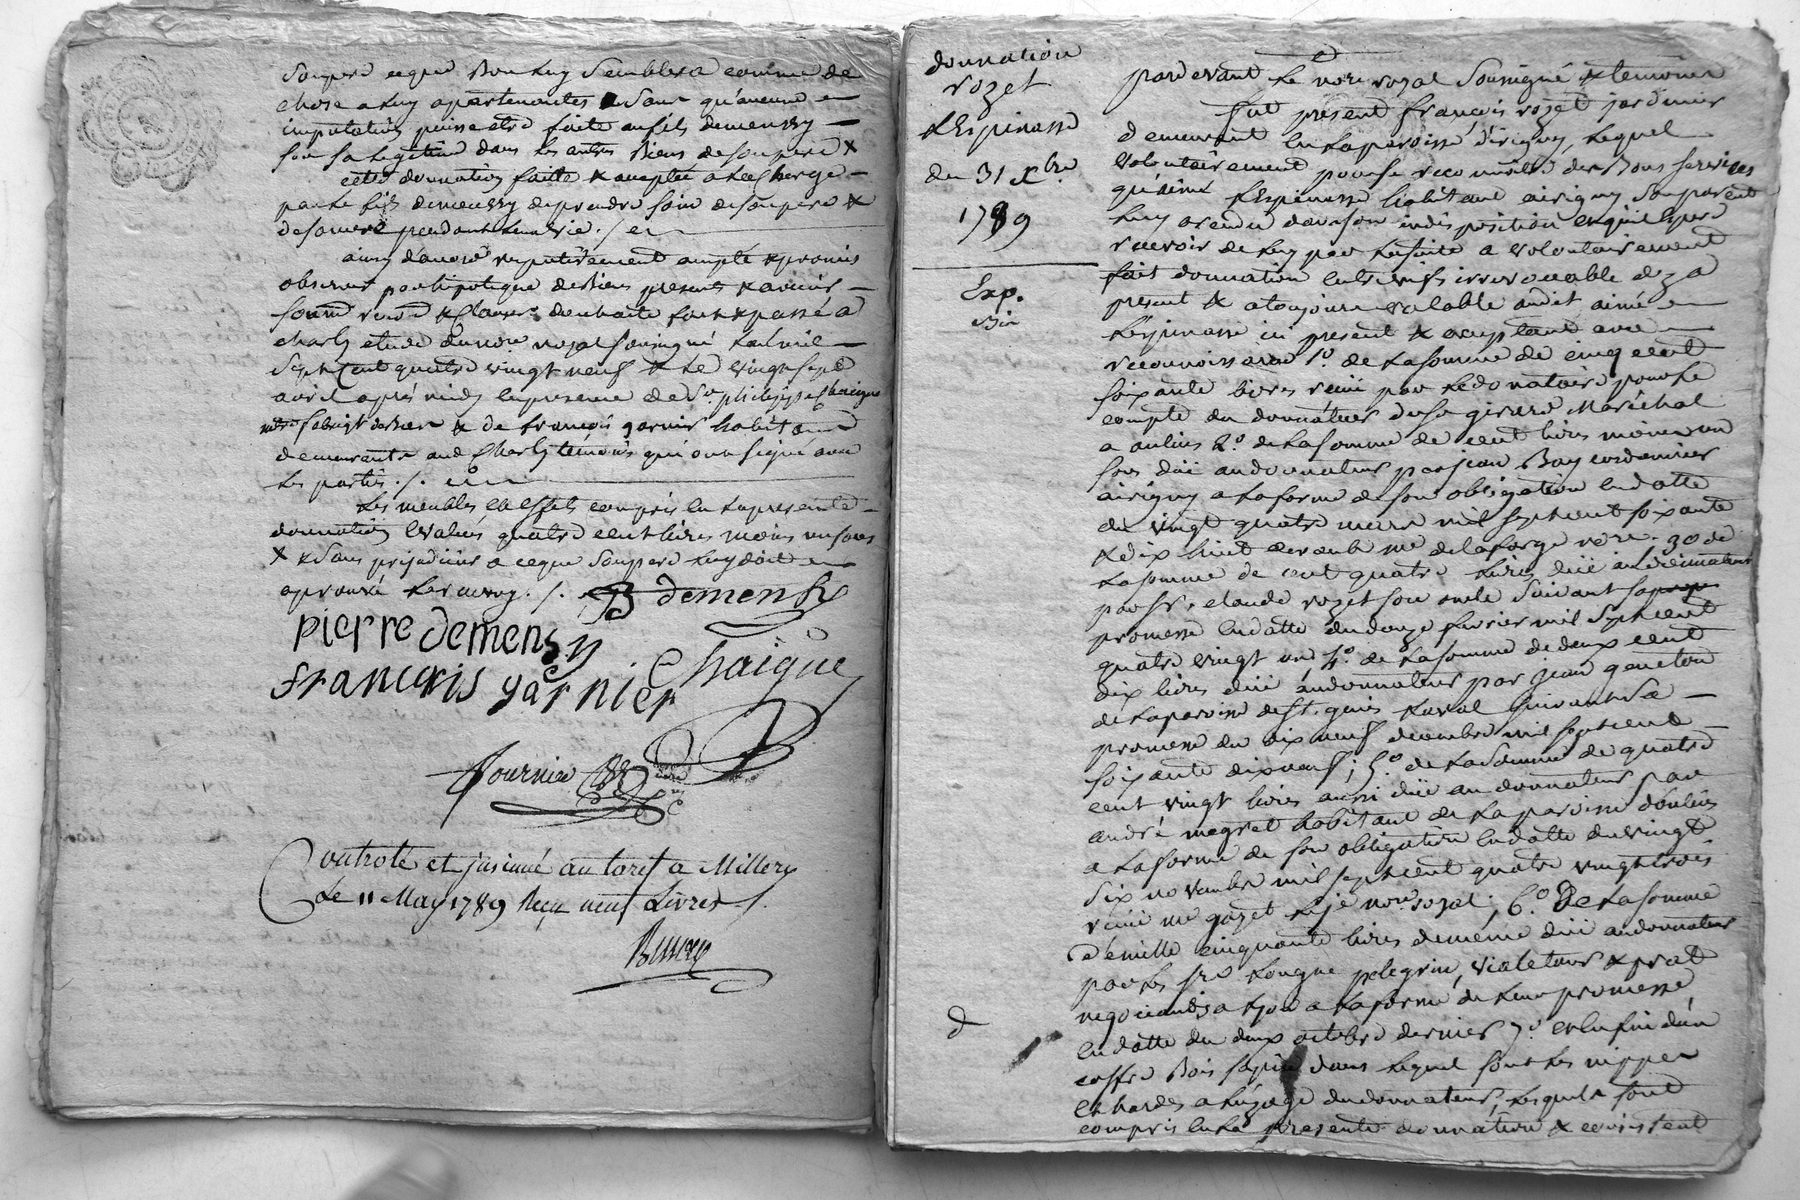 Son pere ce que Bon luy Semblera comme de
chose a luy apartenantes Sans qu'aucune
imputation puisse etre faite au fils demensy
sur sa legitime dans les autres Biens de son pere &
cette donnation faite & acceptée a la Charge
par le fils demensy de prendre soin de son pere &
de sa mere pendant leur vie ./.
ainsy d'accord reciproquement accepté & promis
observer par hipoteque des Biens presents & avenir
soumis & Clauses dont acte fait & passé a
charly etude du nore royal soussigné L'an mil
Sept Cent quatre vingt neuf & le vingt sept
avril après midy en presence de Sr philippe Chaigne
& de françois garnier habitans
demeurants aud Charly témoins qui ont signé avec
les parties ./.
Les meubles et effets compris en la presente
donnation Evalués quatre cent livres moins un sous
& Sans prejudicier a ce que Son pere luy doit
aprouvé le renvoy ./. B demensy
pierre demensy
Chaigne
françois garnier
fournier
Controlé et insinué au tarif a Millery
Le 11 May 1789 Reçu neuf Livres
donnation
rozet
& Espinasse
du 31 Xbre
1789
Exp.
par devant Le nore royal Soussigné & témoins
fut present françois rozet jardinier
demeurant en la paroisse d'irigny, Lequel
volontairement pour se reconnoitre des Bons services
qu'aimé L'Espinasse habitant a irigny Son parent
luy a rendu dans son indisposition et qu'il Espere
recevoir de luy par la suite a volontairement
fait donnation entre vifs irrevocable dez a
present & a toujours valable aud et aimé
L'espinasse ici present & acceptant avec
reconnoissance 1o. de La somme de cinq cent
soixante livres par le donataire pour le
compte du donnateur du sr girard Maréchal
a oulins 2o. de La somme de cent livres moins un
sous düe au donnateur par jean Bay cordonnier
a irigny a la forme de son obligation en datte
du vingt quatre mars mil sept cent soixante
& dix huit devant me delaforge nore. 3o de
La somme de cent quatre livres düe au donnateur
par sr. claude rozet son oncle Suivant sa
promesse en datte du douze fevrier mil Sept cent
quatre vingt un 4o. de La somme de deux cent
dix livres düe au donnateur par jean
de la paroisse de St. genis Laval suivant Sa
promesse du dix neuf decembre mil sept cent
soixante dix neuf; 5o. de La Somme de quatre
cent vingt livres aussi düe au donnateur par
andré magret habitant de La paroisse d'oulins
a La forme de son obligation en datte du vingt
Six novembre mil sept cent quatre vingt trois
me gazet nore royal; 6o De La somme
de mille cinquante livres de meme düe au donnateur
par les srs Longue pelegrin, violeteur & prat
negociants a Lyon a La forme de Leur promesse
en datte du deux octobre dernier 7o. et en fin d'un
coffre Bois sapin dans lequel sont Les nippes
et hardes a L'usage du donnateur, Lesquels sont
compris en La presente donnation & consistent